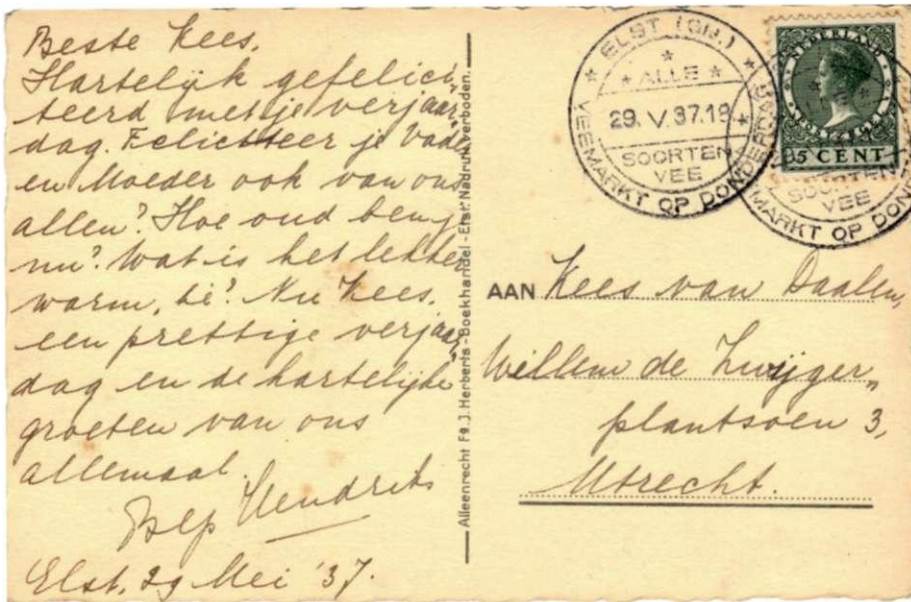 Beste Kees,
Hartelijk gefelici-
teerd met je verjaar-
dag. Feliciteer je Vader
en Moeder ook van ons
allen? Hoe oud ben je
nu? Wat is het lekker
warm, hè? Nu Kees,
een prettige verjaar-
dag en de hartelijke
groeten van ons
allemaal.
Bep Hendriks
Elst, 29 Mei '37.
Alleenrecht Fa. J. Herberts - Boekhandel - Elst. Nadruk verboden.
ELST (GLD.)
ALLE
29. V. 37.18
SOORTEN
VEE
VEEMARKT OP DONDERDAG
NEDERLAND
5 CENT
SOORTEN
VEE
MARKT OP DON
AAN Kees van Daalen,
Willem de Zwijger„
plantsoen 3,
Utrecht.